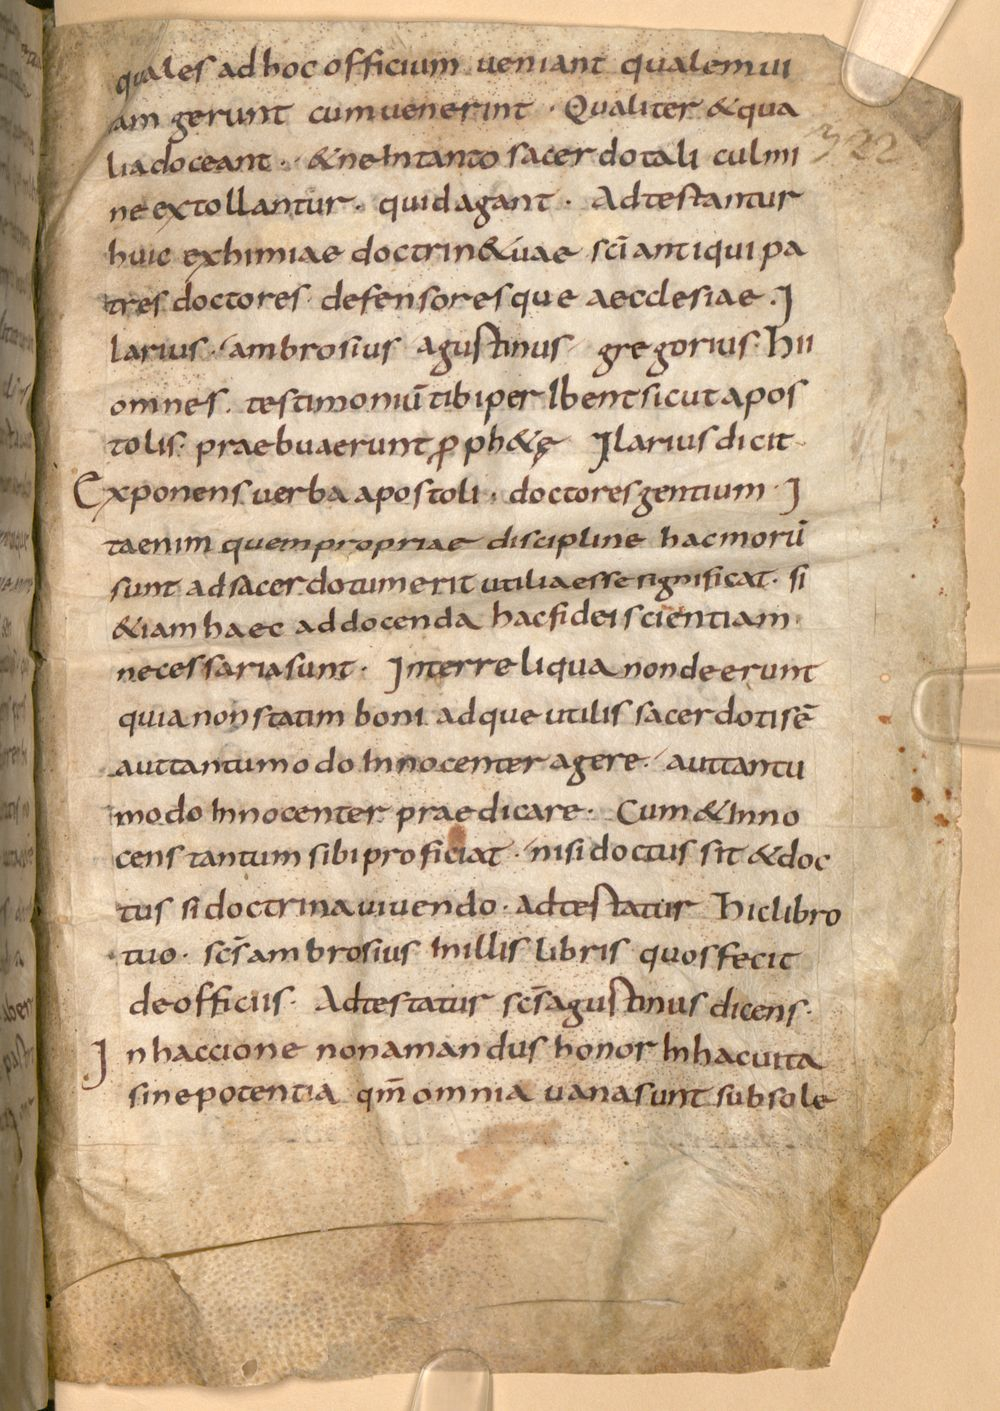 quales ad hoc officium veniant qualem ui
am gerunt cum venerint · Qualiter & qua
lia doceant · & ne in tanto sacerdotali culmi
ne extollantur · quid agant · Adtestantur
huic exhimiae doctrin& uae sc̄i antiqui pa
tres doctores defensoresque aecclesiae · I
larius · ambrosius agustinus gregorius · hii
omnes · testimoniū tibi per lbent sicut apos
tolis · praebuaerunt ꝓph&ę Ilarius dicit
Exponens verba apostoli · doctores gentium · I
ta enim quem propriae discipline hac morū
sunt ad sacerdotum erit utilia esse significat · si
&iam haec ad docenda hac fidei scientiam
necessaria sunt · Inter reliqua non deerunt
quia non statim boni adque utilis sacerdotis ē
aut tantumodo innocenter agere · aut tantu
modo innocenter praedicare · Cum & inno
cens tantum sibi proficiat · nisi doctus sit & doc
tus si doctrina vivendo · adtestatur hic libro
tuo · sc̄s ambrosius in illis libris quos fecit
de officiis · Adtestatur sc̄s agustinus dicens ·
In haccione non amandus honor in hac uita
sine potentia qm̄ omnia vana sunt sub sole
322